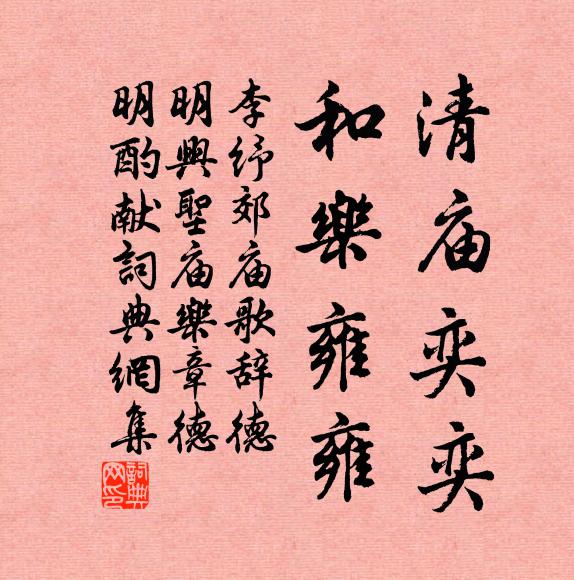 清庙奕奕
和樂雍雍
李纾郊庙歌辞德
明興聖庙樂章德
明酌献詞典網集
詞典网印